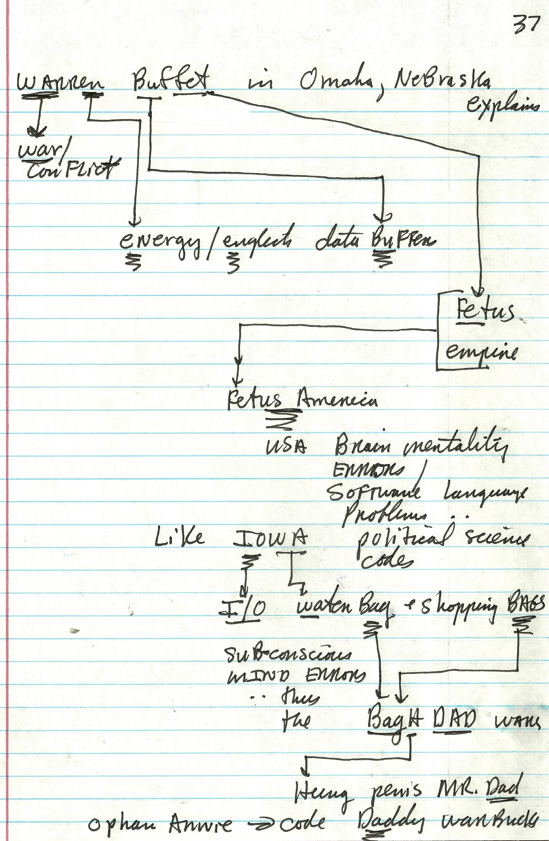 37
WARREN Buffet in Omaha, NeBraska
explains
war/
conflict
energy/english data BUFFer
Fetus
empire
Fetus America
USA Brain mentality
ERRORS /
Software language
Problems ..
Like IOWA political science
codes
I/O water Bag + shopping BAGS
SUB-conscious
MIND ERRORS
.. thus
the BagH DAD wars
Hung penis MR. Dad
Ophan Annie → code Daddy warBucks